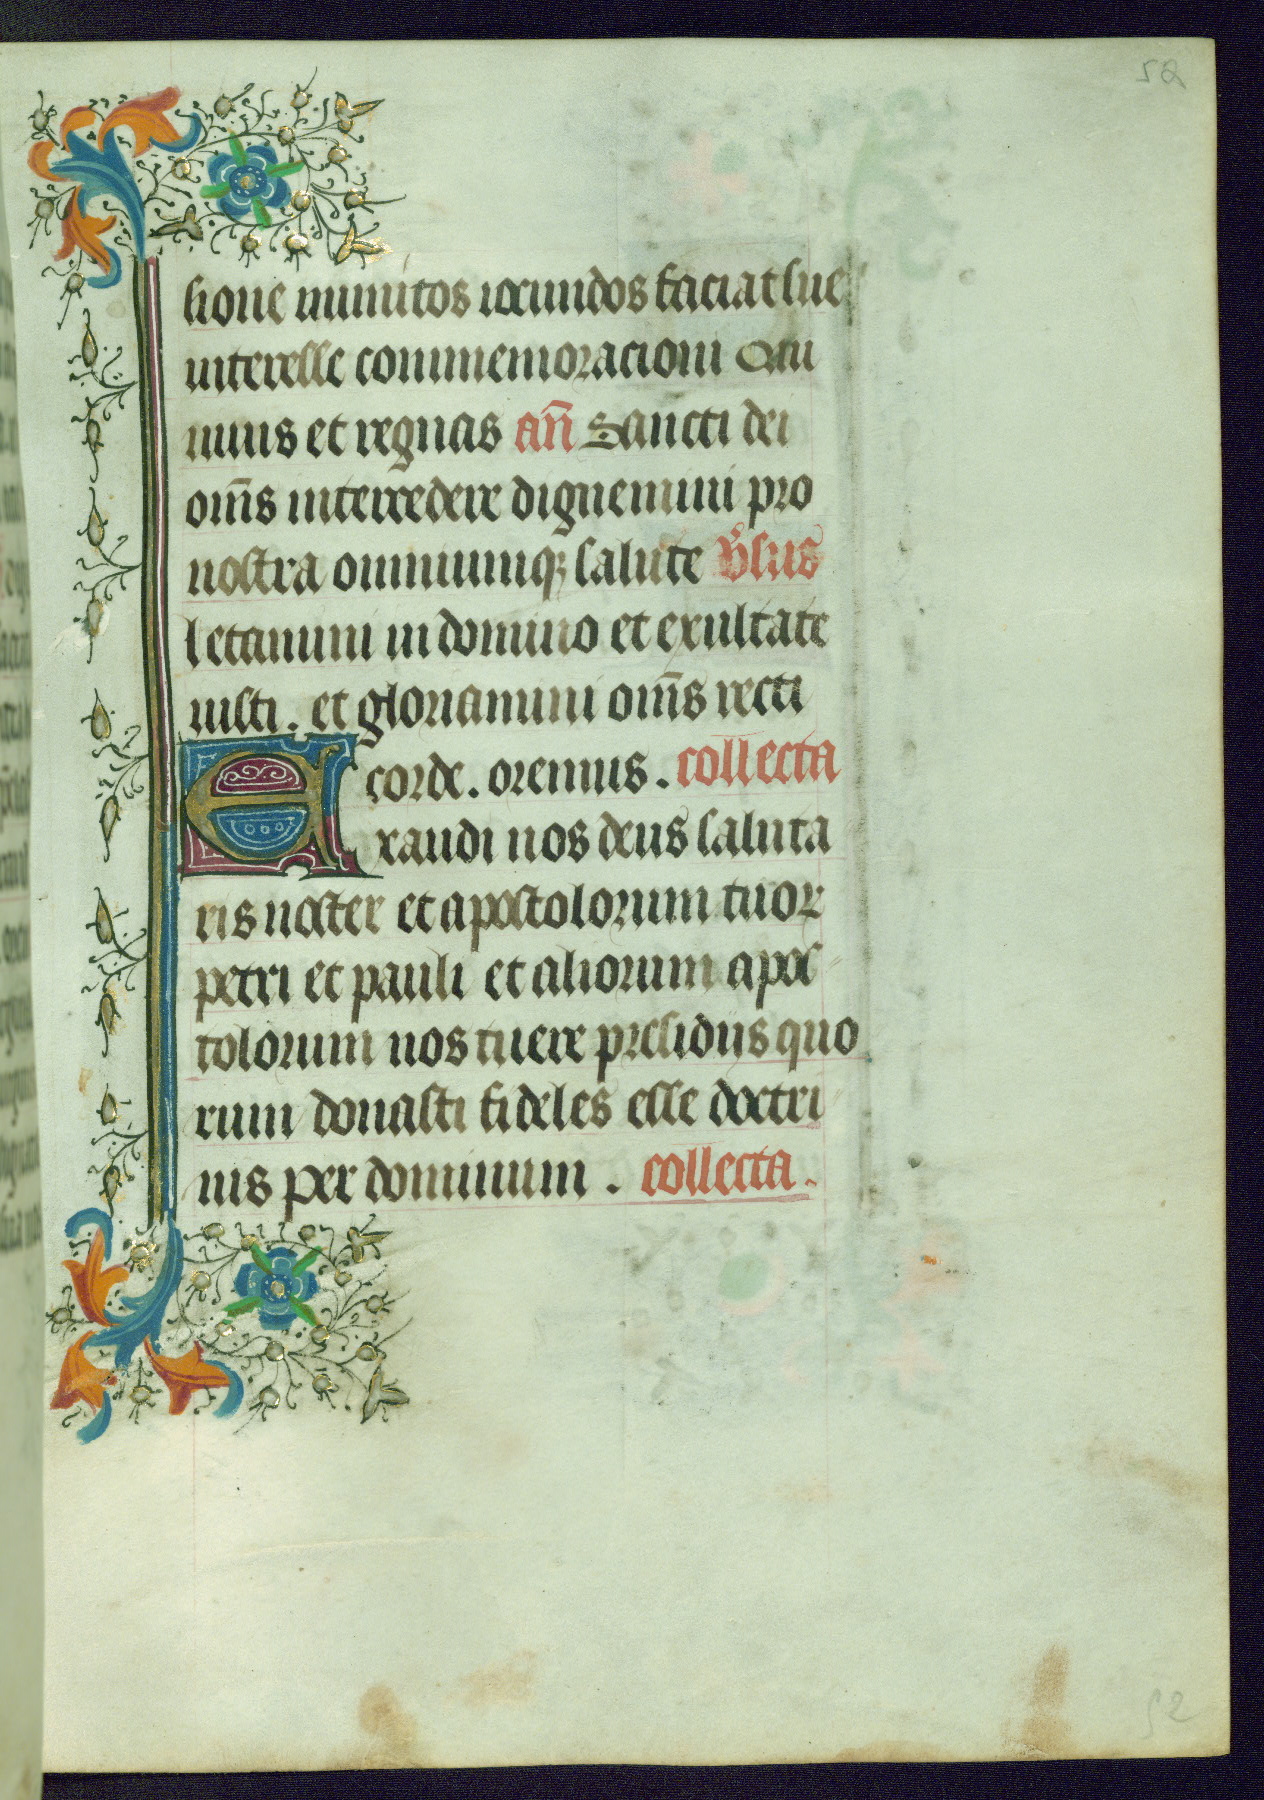 52
sione munitos iocundos faciat sue
interesse commemoracioni Qui
uiuis et regnas an̄ Sancti dei
om̄s intercedere dignemini pro
nostra omniumq; salute v̄sus
letamini in domino et exultate
iusti. et gloriamini om̄s recti
corde. oremus. collecta
Exaudi nos deus saluta
ris noster et apostolorum tuor
petri et pauli et aliorum apos
tolorum nos tuere presidijs quo
rum donasti fideles esse doctri
nis per dominum. collecta.
52